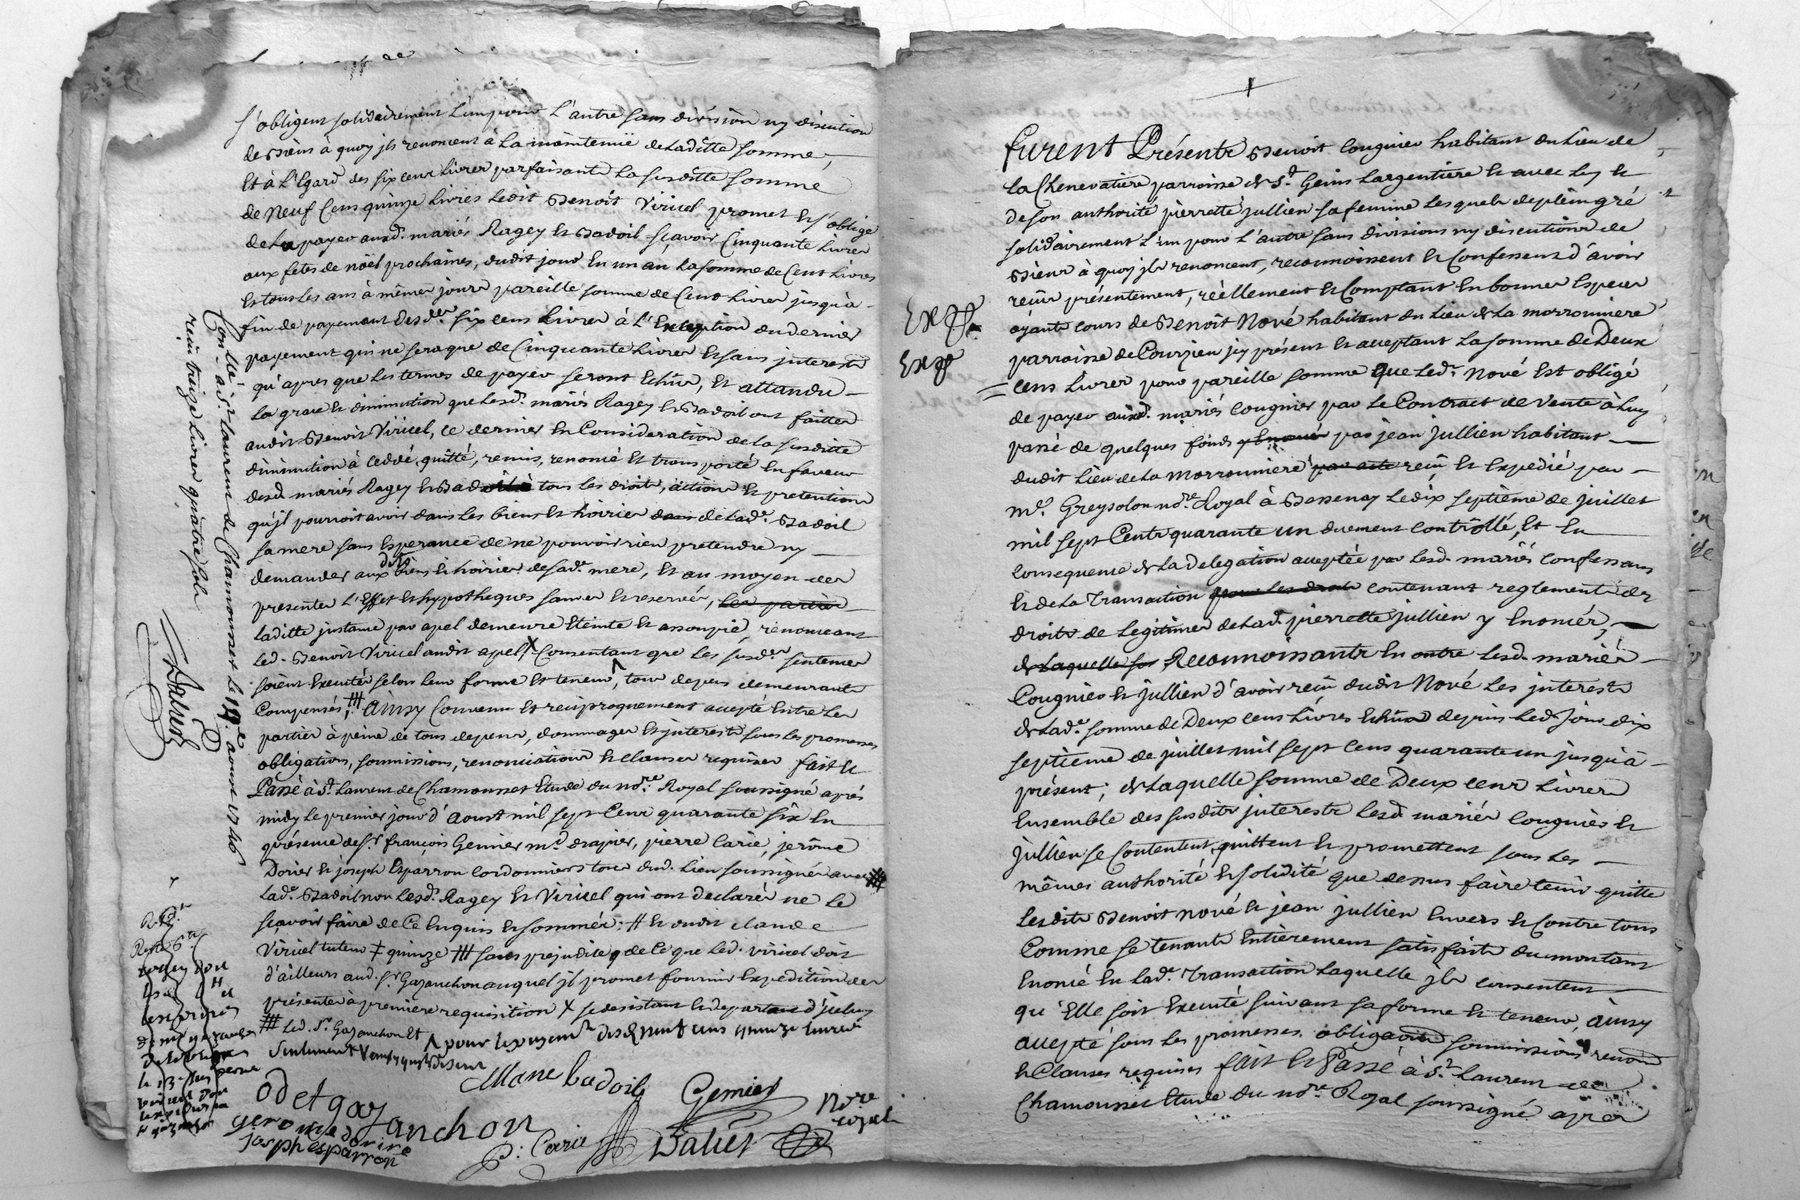 s'obligent solidairement l'un pour l'autre sans division ny discution
de biens à quoy jls renoncent à la maintenüe de laditte somme,
Et à l'Egard des six cens livres parfaisant la susditte somme
de Neuf Cens quinze livres ledit Benoit Viricel promet et s'oblige
de la payer auxd. mariés Ragey et Badoil sçavoir Cinquante livres
aux fetes de nöel prochaines, dudit jour En un an la somme de Cent livres
et tous les ans à mêmes jours pareille somme de Cent livres jusqu'à
fin de payement desd. six cens livres à l'Exception du dernier
payement qui ne sera que de Cinquante livres et sans interests
qu'apres que les termes de payer seront Echus, et attandu
la grace et diminution que lesd. mariés Ragey et Badoil ont faitte
audit Benoit Viricel, ce dernier En Consideration de la susditte
diminution à ceddé, quitté, remis, renoncé et transporté En faveur
desd. mariés Ragey et Badoil tous les droits, actions et pretentions
qu'jl pourroit avoir dans les biens et hoiries de lade. Badoil
sa mere sans Esperance de ne pouvoir rien pretendre ny
demander aux dits biens et hoiries de sad. mere, et au moyen des
presentes l'Effet et hypotheques sauves et reservés,
laditte jnstance par apel demeure Eteinte et assoupie, renonceant
led. Benoit Viricel audit apel X Consentant que les susd. sentences
soient Executées selon leur forme et teneur, tous depens demeurants
Compensés, ainsy Convenu et reciproquement accepté Entre les
parties à peine de tous depens, dommages et jnterests sous les promesses
obligations, soumissions, renonciations et clauses requises fait et
Passé à St. Laurent de Chamousset Etude du nore. Royal soussigné après
midy le premier jour d'Aoust mil sept Cens quarante six En
présence de Sr. françois Gemier md. drapier, pierre Carie, jerôme
Dorier et joseph Esparron cordonniers tous dud. lieu soussignés avec
lade. Badoil non lesd. Ragey et Viricel qui ont declaré ne le
sçavoir faire de Ce Enquis et sommés: # et dudit claude
Viricel tuteur ‡ quinze ### sans préjudice de Ce que led. Viricel doit
d'ailleurs aud. Sr. Gazanchon auquel jl promet fournir Expedition des
présentes à première requisition X se desistant et departant d'jceluy
### led. Sr. Gazanchon et
seulement
Marie badoil
Gemier
Nore
royal
odet gazanchon
gerome dorire
josph esparron
p: Carie
Dalier
Con.llé à St. laurent de Chamousset le 14e. aoust 1746
reçu treize livres quatre sols
Dalier
furent Présents Benoit Cougnier habitant du lieu de
la Chenevatiere parroisse de St. Genis Largentiere et avec luy et
de son authorité pierrette jullien sa femme lesquels de plein gré
solidairement l'un pour l'autre sans divisions ny discutions de
biens à quoy jls renoncent, reconnoissent et Confessent d'avoir
reçu présentement, réellement et Comptant En bonnes Especes
ayants cours de Benoit Nové habitant du lieu de la morronniere
Exp.
Exp
parroisse de Courzieu jcy présent et acceptant la somme de Deux
cens livres pour pareille somme que led. Nové est obligé
de payer auxd. mariés Cougnier par le Contract de Vente à luy
passé de quelques fonds par jean Jullien habitant
dudit lieu de la morronniere par acte reçu et expedié par
me. Greysolon nore. Royal à Bessenay le dix septième de juillet
mil sept Cents quarante un duement contrôllé, et En
consequence de la delegation acceptée par lesd. mariés confessants
et de la Transaction pour les droits contenant reglements des
droits de legitimes de lad. pierrette jullien y Enoncés,
de laquelle Reconnoissants En outre lesd. mariés
Cougnier et jullien d'avoir reçu dudit Nové les jnterests
de lade. somme de Deux cens livres Echus depuis led. jour dix
septième de juillet mil sept cens quarante un jusqu'à
présent; de laquelle somme de Deux cens livres
Ensemble des susdits jnterests lesd. mariés Cougnier et
jullien se Contentent, quittent et promettent sous les
mêmes authorité et solidité que dessus faire tenir quitte
lesdits Benoit Nové et jean jullien Envers et Contre tous
Comme se tenants Entièrement satisfaits du montant
Enoncé En lade. Transaction laquelle jls consentent
qu'Elle soit Executé suivant sa forme et teneur, ainsy
accepté sous les promesses, obligations soumissions renon
et Clauses requises fait et Passé à St. Laurent de
Chamousset Etude du nore. Royal soussigné apres